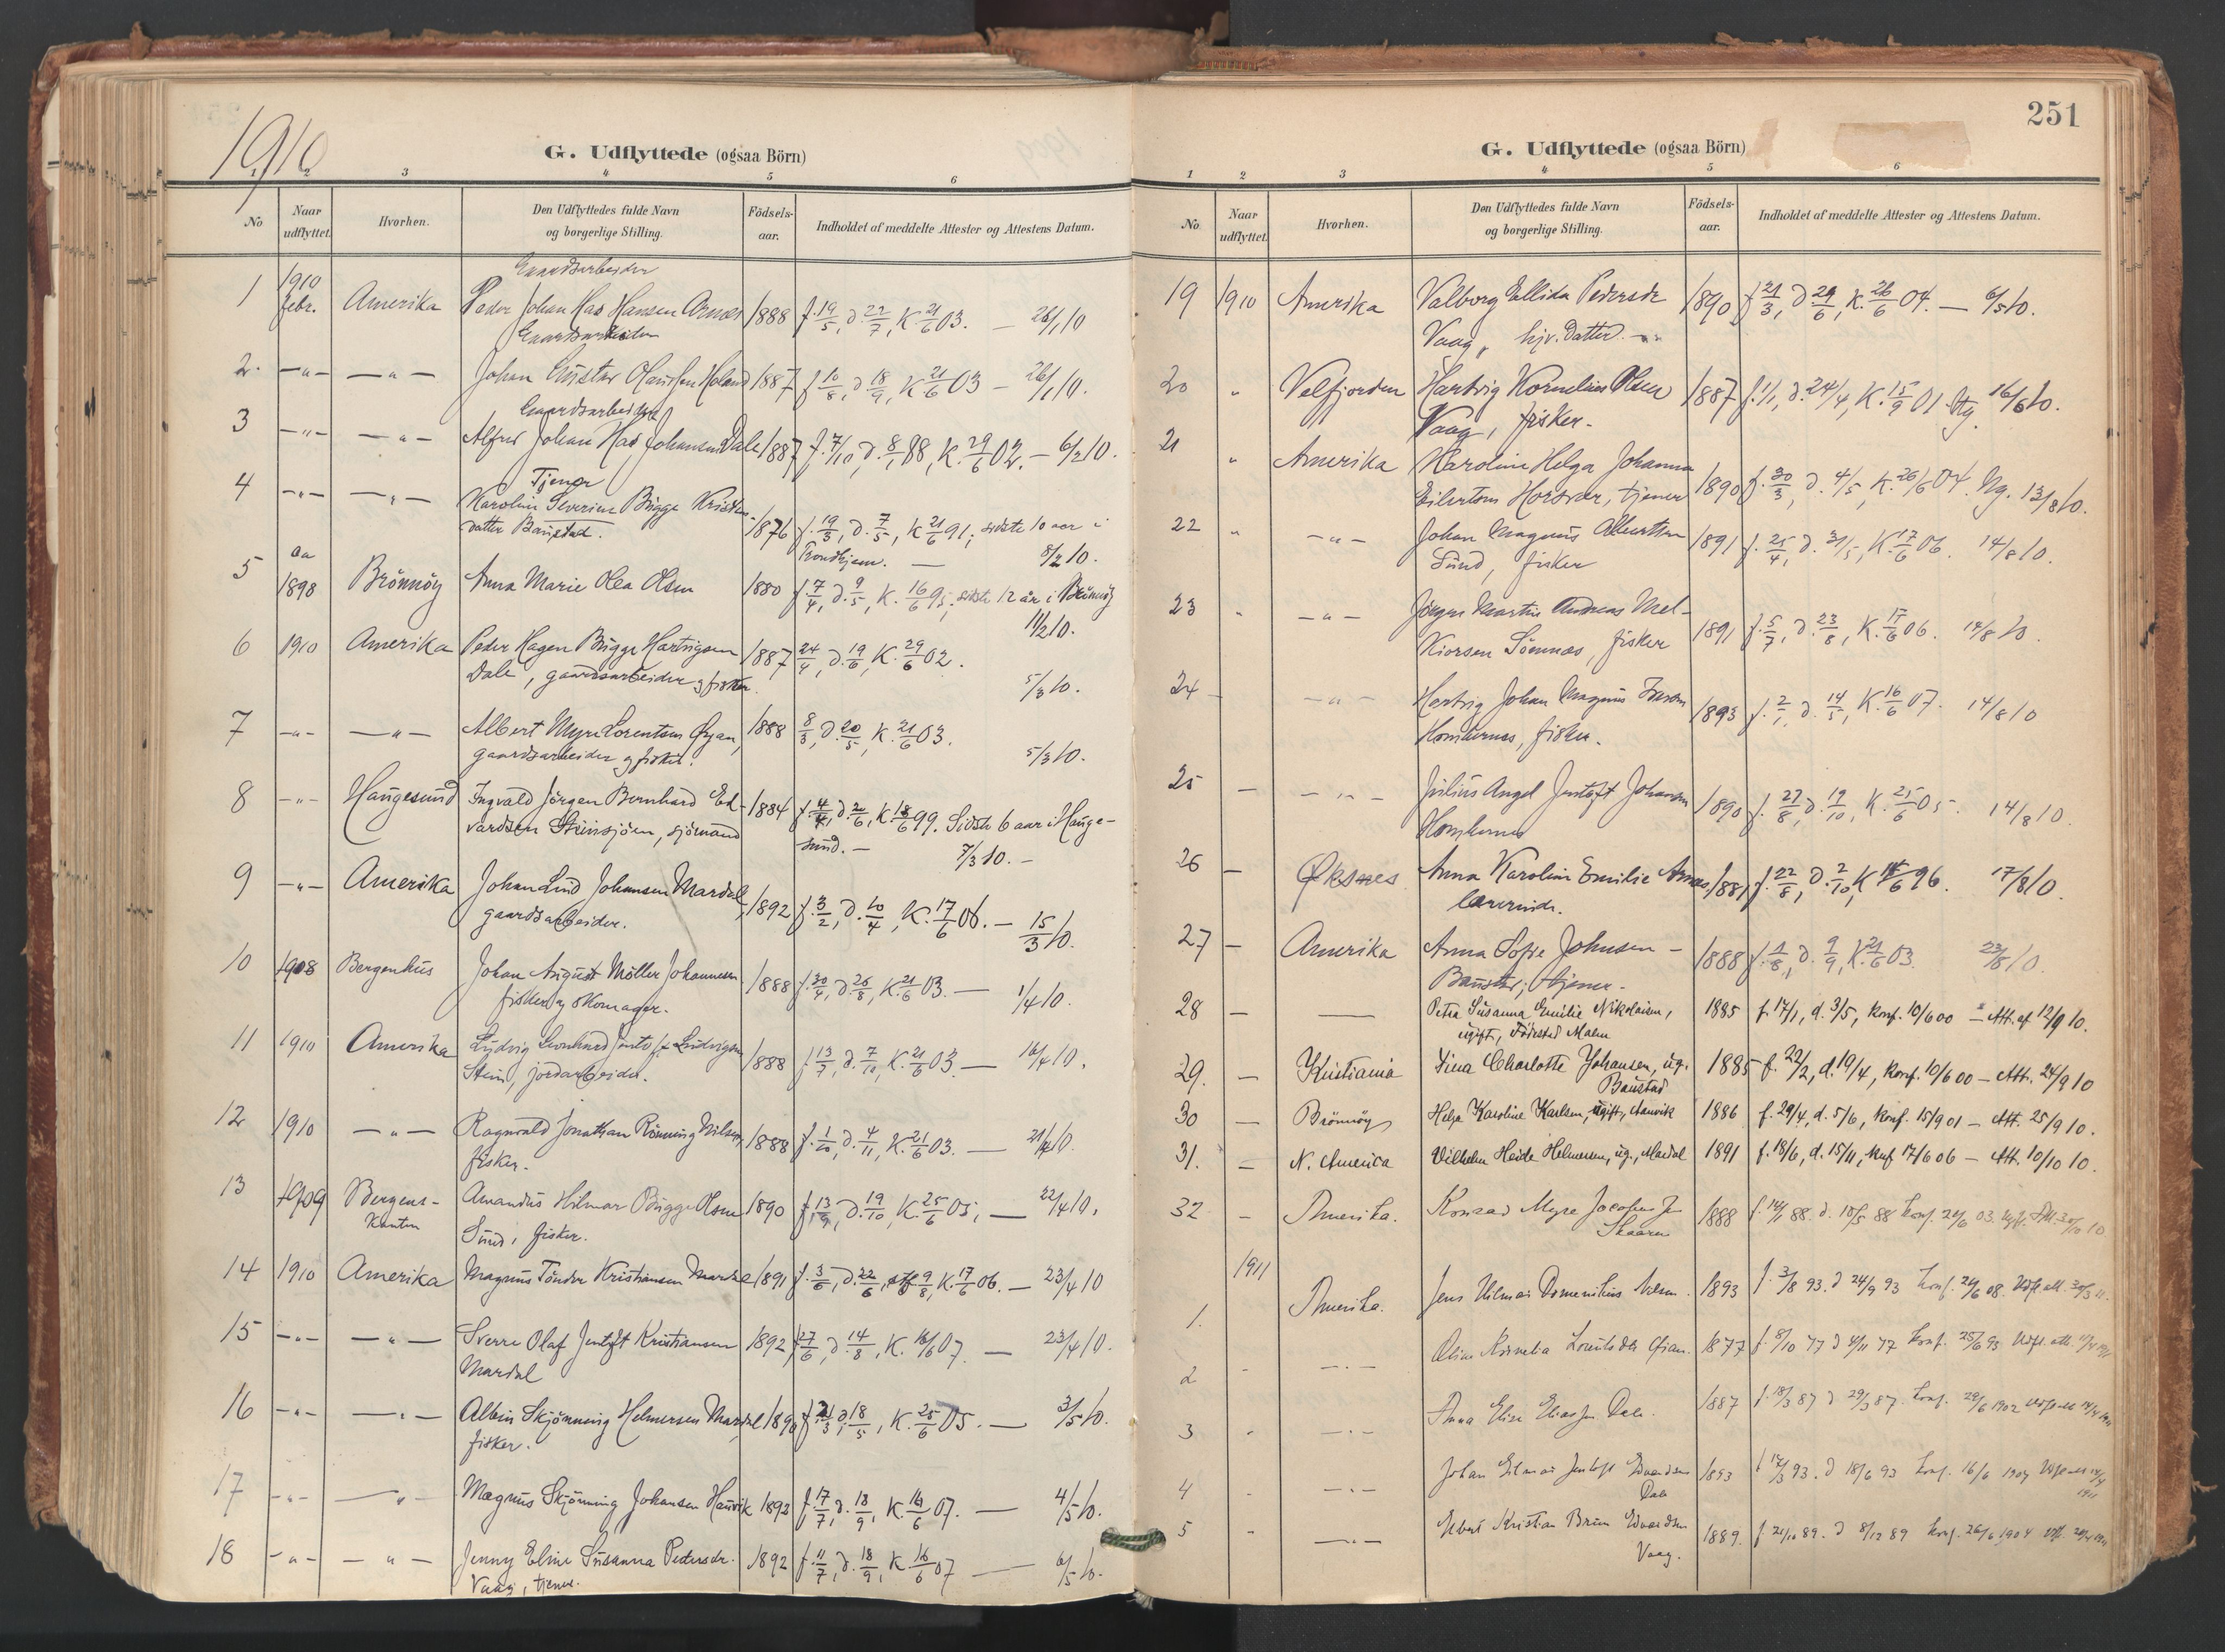 1910
G. Udflyttede (ogsaa Börn)
1 2 3 4 5 6
No Naar udflyttet. Hvorhen. Den Udflyttedes fulde Navn og borgerlige Stilling. Födsels-aar. Indholdet af meddelte Attester og Attestens Datum.
Gaardsarbeider
1 1910 febr. Amerika Peder Johan Hansen Arnæs 1888 f. 19/5, d. 22/7, K. 21/6 03. — 26/1 10
Gaardsarbeider
2. —"— —"— Johan Gustav Olaussen Holand 1887 f. 10/8, d. 18/9, K 21/6 03 — 26/1 10.
Gaardsarbeider
3 —"— —"— Alfred Johan Johansen Dale 1887 f. 7/10, d. 8/1 88, K. 29/6 02. — 6/2 10.
Tjener
4 —"— —"— Karolin Severine Bugge Kristen-
datter Baustad. 1876 f. 19/3, d. 7/5, K 21/6 91; sidste 10 aar i
Trondhjem. — 8/2 10.
5 1898 Brönnöy Anna Marie Olea Olsen 1880 f. 7/4, d. 9/5, K. 16/6 95; sidste 12 år i Brönnöy
11/2 10.
6 1910 Amerika Peder Hagen Bugge Hartvigsen 1887 24/4, d. 19/6, K. 29/6 02.
Dale, gaardsarbeider og fisker. 5/3 10.
7 —"— —"— Albert Myre Lorentsen 1888 8/3, d. 20/5, K. 21/6 03.
gaardsarbeider og fisker. 5/3 10.
8 —"— Haugesund Ingvald Jörgen Bernhard Ed- 1884 f. 4/4, d. 2/6, K. 18/6 99. Sidste 6 aar i Hauge-
vardsen Steinsjöen, sjömand sund. — 7/3 10. —
9 —"— Amerika Johan Lind Johansen Mardal, 1892 f. 3/2, d. 10/4, K. 17/6 06. — 15/3 10.
gaardsarbeider.
10 1908 Bergenhus Johan August Möller Johannesen 1888 f. 30/4, d. 26/8, K. 21/6 03. — 1/4 10.
fisker og skomager.
11 1910 Amerika Ludvig Leonhard Jentoft Ludvigsen 1888 f. 13/7, d. 7/10, K. 21/6 03. — 16/4 10.
Stein, jordarbeider.
12 1910 —"— Ragnvald Jonathan Rönning Nilsen, 1888 f. 1/10, d. 4/11, K. 21/6 03. — 21/4 10.
fisker.
13 1909 Bergens- Amandus Hilmar Bugge Olsen 1890 f. 13/9, d. 19/10, K. 25/6 05. — 22/4 10.
kanten Sund, fisker.
14 1910 Amerika Magnus Tönder Kristiansen Mardal 1891 f. 3/6, d. 22/6, stf 9/8, K. 17/6 06. — 23/4 10
15 —"— —"— Sverre Olaf Jentoft Kristiansen 1892 f. 27/6, d. 14/8, K. 16/6 07. — 23/4 10.
Mardal
16 —"— —"— Albin Skjönning Helmersen Mardal 1890 f. 21/3, d. 18/5, K. 25/6 05. — 3/5 10.
fisker.
17 —"— —"— Magnus Skjönning Johansen Hauvik 1892 f. 17/7, d. 18/9, K. 16/6 07. — 4/5 10.
18 —"— —"— Jenny Eline Susanna Pedersdr. 1892 f. 11/7, d. 18/9, K. 16/6 07 — 6/5 10.
Vaag, tjener.
251
G. Udflyttede (ogsaa Börn)
1 2 3 4 5 6
No. Naar udflyttet. Hvorhen. Den Udflyttedes fulde Navn og borgerlige Stilling. Födsels-aar. Indholdet af meddelte Attester og Attestens Datum.
19 1910 Amerika Valborg Ellida Pedersdr. 1890 f. 21/3, d. 29/6, K. 26/6 04. — 6/5 10.
Vaag, hjv. datter.
20 " Velfjorden Hartvig Kornelius Olsen 1887 f. 1/1, d. 24/4, K. 15/9 01. Ug. 16/6 10.
Vaag, fisker.
21 " Amerika Karoline Helga Johanna
Eilertsen Horsvær, tjener 1890 f. 30/3, d. 4/5, K. 26/6 04. Ug. 13/8 10.
22 " —"— Johan Magnus Albertsen 1891 f. 25/4, d. 31/5, K. 17/6 06. 14/8 10.
Sund, fisker
23 " —"— Jörgen Martin Andreas Mel-
kiorsen Sömnæs, fisker 1891 f. 5/7, d. 23/8, K. 17/6 06. 14/8 10.
24 — —"— Hartvig Johan Magnus 1893 f. 2/1, d. 14/5, K. 16/6 07. 14/8 10
Homhornes, fisker.
25 — —"— Julius Angel Jentoft Johansen 1890 f. 27/8, d. 19/10, K. 25/6 05. 14/8 10.
Homhornes
26 — Øksnes Anna Karolin Emilie Arnæs 1881 f. 22/8, d. 2/10, K 14/6 96. 17/8 10.
lærerinde.
27 — Amerika Anna Sofie Johnsen — 1888 f. 1/8, d. 9/9, K. 21/6 03. 23/8 10.
Baustad; tjener.
28 — — Petra Susanna Emilie Nikolaisen, 1885 f. 17/1, d. 3/5, konf. 10/6 00 — Att. af 12/9 10.
ugift,
29. — Kristiania Tina Charlotte Johansen, ug. 1885 f. 22/2, d. 19/4, konf. 10/6 00 — Att. 24/9 10
Baustad
30 — Brönnöy Helga Karoline Karlsen, ugift, 1886 f. 29/4, d. 5/6, konf. 15/9 01 — Att. 25/9 10.
31. — N. America Vilhelm Heide Helmersen, ug., Mardal 1891 f. 18/6, d. 15/11, konf 17/6 06 — Att. 10/10 10.
32 — Amerika. Konrad Myre Jacobsen 1888 f. 14/1 88. d. 10/5 88 konf. 21/6 03.
Skaaren
1911
1. Amerika. Jens Hilmar Domenikus 1893 f. 3/8 93. d 24/9 93 konf. 21/6 08.
2 - —"— Oline Kornelia 1877 f. 8/10 77 d 4/11 77 konf. 25/6 93
3 - —"— Anna Elise Eliassen Dale. 1887 f. 18/3 87 d 29/3 87. konf. 29/6 1902
4 - —"— Johan Hilmar Jentoft Edvardsen 1893 f 12/3 93. d 18/6 93 konf. 16/6 1907
Dale 1911
5 - —"— Kristian Bruun Edvardsen 1889. f 21/10 89. d 8/12 89 konf. 26/6 1904
Vaag.